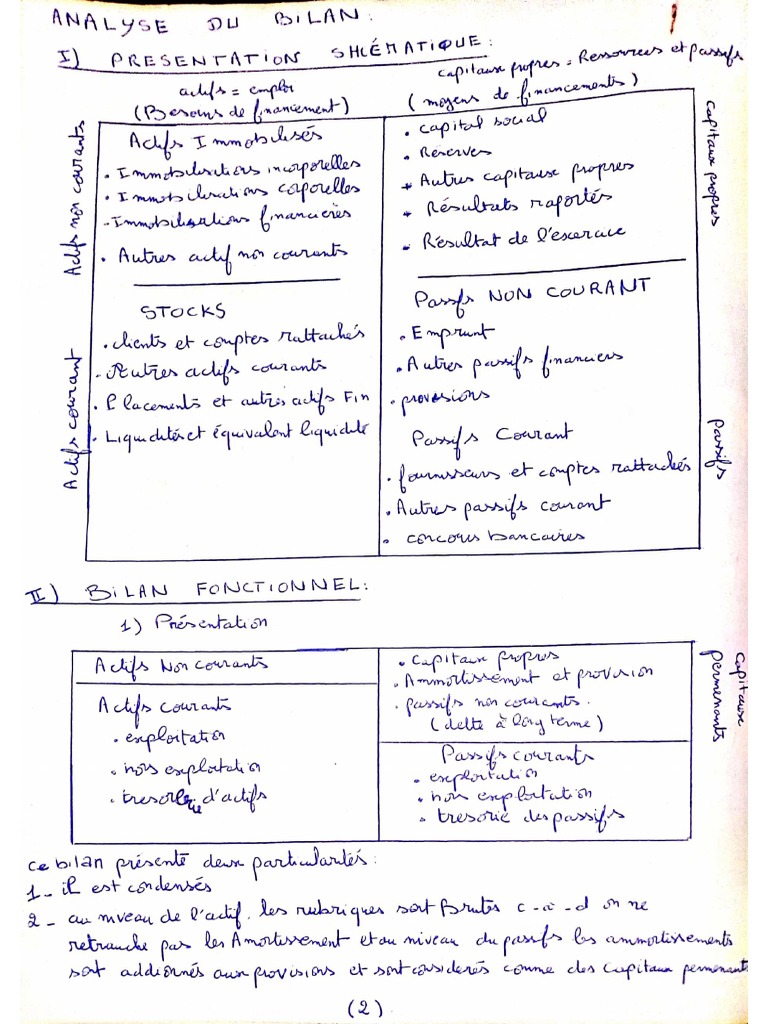 ANALYSE DU BILAN:
I) PRESENTATION SHLÉMATIQUE:
actifs = emploi
(Besoins de financement)
capitaux propres = Ressources et passifs
(moyens de financements)
Actifs non courants
Actifs Immobilisés
. Immobilisations incorporelles
. Immobilisations corporelles
- Immobilisations financières
. Autres actif non courants
Actifs courant
STOCKS
. clients et comptes rattachés
- Autres actifs courants
. Placements et autres actifs Fin
. Liquidités et équivalent liquidité
Capitaux propres
. Capital social
. Réserves
. Autres capitaux propres
. Résultats raportés
. Résultat de l'exercice
passifs
Passifs NON COURANT
. Emprunt
. Autres passifs financiers
. provisions
Passifs Courant
. fournisseurs et comptes rattachés
. Autres passifs courant
. concours bancaires
II) BILAN FONCTIONNEL:
1) Présentation
Actifs Non courants
Actifs courants
. exploitation
. hors exploitation
. d'actifs
capitaux permenants
. Capitaux propres
. Ammortissement et provision
. passifs non courants.
(dette à long terme)
Passifs courants
. exploitation
. hors exploitation
. tresorie des passifs
ce bilan présente deux particularités:
1- il est condensés
2- au niveau de l'actif. les rubriques sont Brutes c-à-d on ne
retranche pas les Amortissement et au niveau du passifs les ammortissements
sont addionnés aux provisions et sont considerés comme des Capitaux permenants
(2)